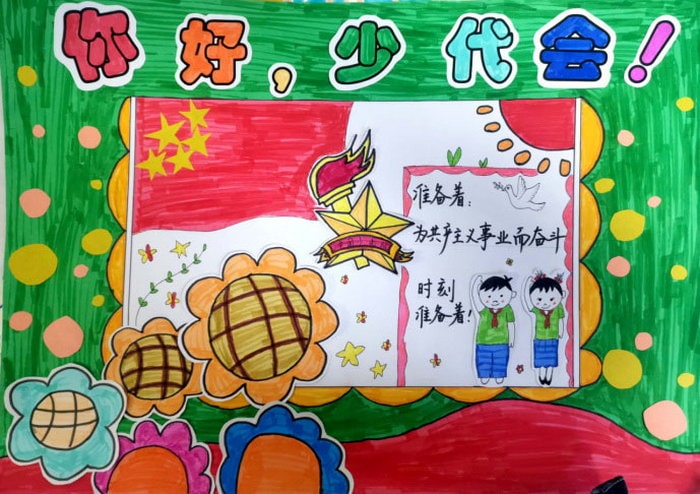 你好,少代会!
准备着:
为共产主义事业而奋斗
时刻
准备着!